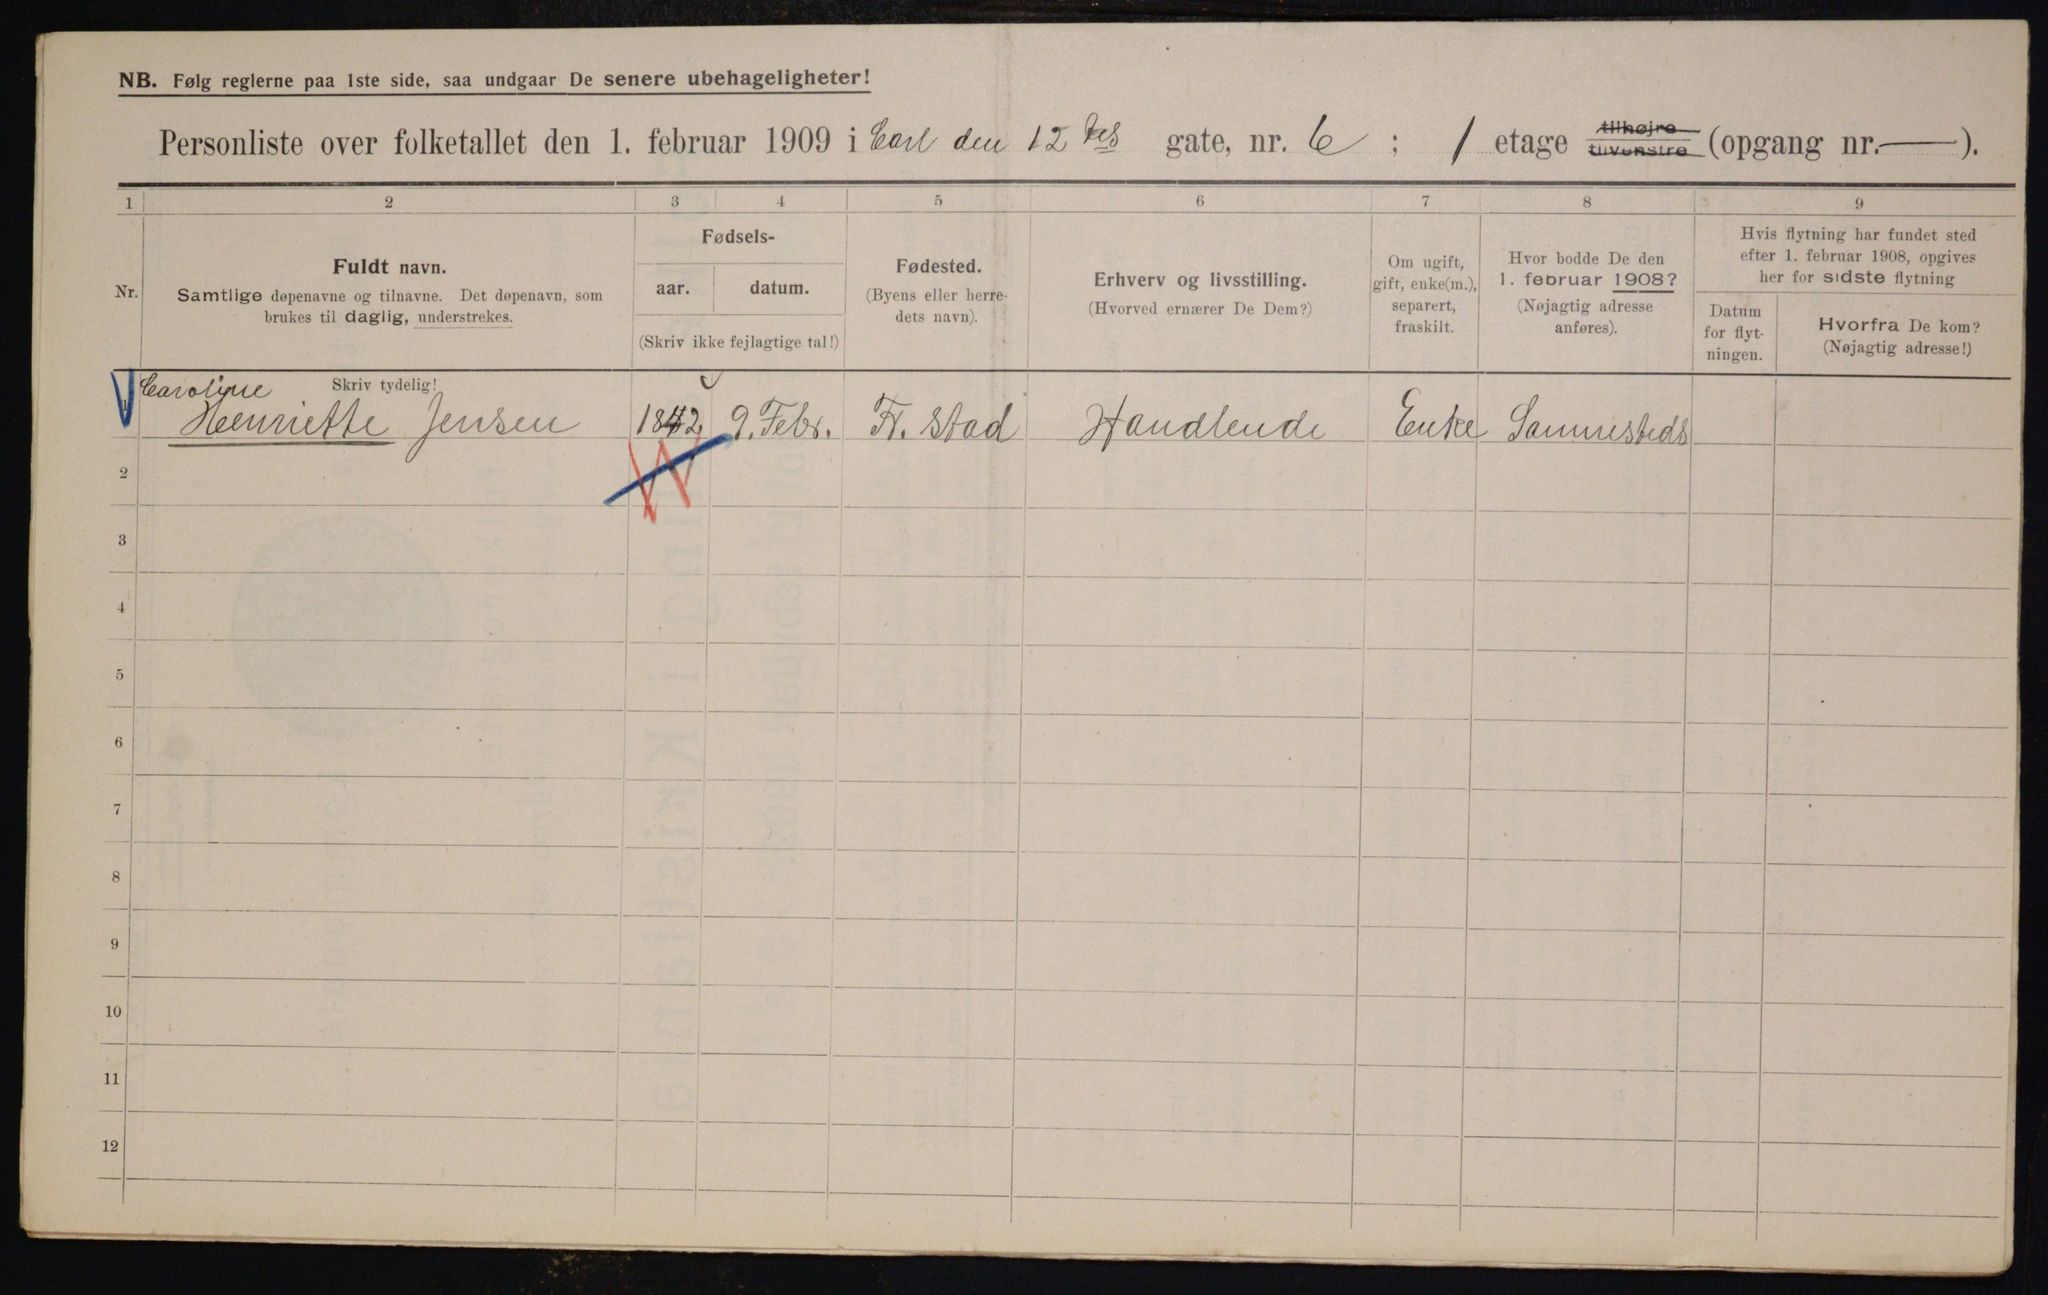 NB. Følg reglerne paa 1ste side, saa undgaar De senere ubehageligheter!
Personliste over folketallet den 1. februar 1909 i Carl den 12 tes gate, nr. 6 ; 1 etage tilhøjre tilvenstre (opgang nr. — ).
1 2 3 4 5 6 7 8 9
Nr.
Fuldt navn.
Samtlige døpenavne og tilnavne. Det døpenavn, som
brukes til daglig, understrekes.
Fødsels-
aar. datum.
(Skriv ikke fejlagtige tal!)
Fødested.
(Byens eller herre-
dets navn).
Erhverv og livsstilling.
(Hvorved ernærer De Dem?)
Om ugift,
gift, enke(m.),
separert,
fraskilt.
Hvor bodde De den
1. februar 1908?
(Nøjagtig adresse
anføres).
Hvis flytning har fundet sted
efter 1. februar 1908, opgives
her for sidste flytning
Datum
for flyt-
ningen.
Hvorfra De kom?
(Nøjagtig adresse!)
Skriv tydelig!
Caroline
1 Henriette Jensen 1842 9. Febr. Fr. stad Handlende Enke Sammesteds
2
3
4
5
6
7
8
9
10
11
12